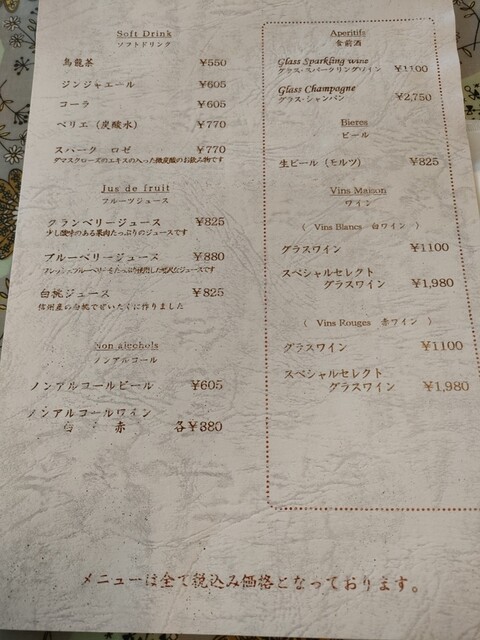 Soft Drink
ソフトドリンク
烏龍茶 ¥550
ジンジャエール ¥605
コーラ ¥605
ペリエ（炭酸水） ¥770
スパーク ロゼ ¥770
ダマスクローズのエキスの入った微炭酸のお飲み物です
Jus de fruit
フルーツジュース
クランベリージュース ¥825
少し酸味のある果肉たっぷりのジュースです
ブルーベリージュース ¥880
フレッシュブルーベリーをたっぷり使用した贅沢なジュースです
白桃ジュース ¥825
信州産の白桃でぜいたくに作りました
Non alcohols
ノンアルコール
ノンアルコールビール ¥605
ノンアルコールワイン
白 ・ 赤 各¥880
Aperitifs
食前酒
Glass Sparkling wine
グラス・スパークリングワイン ¥1100
Glass Champogne
グラス・シャンパン ¥2,750
Bieres
ビール
生ビール（モルツ） ¥825
Vins Maison
ワイン
( Vins Blancs 白ワイン )
グラスワイン ¥1100
スペシャルセレクト
グラスワイン ¥1,980
( Vins Rouges 赤ワイン )
グラスワイン ¥1100
スペシャルセレクト
グラスワイン ¥1,980
メニューは全て税込み価格となっております。